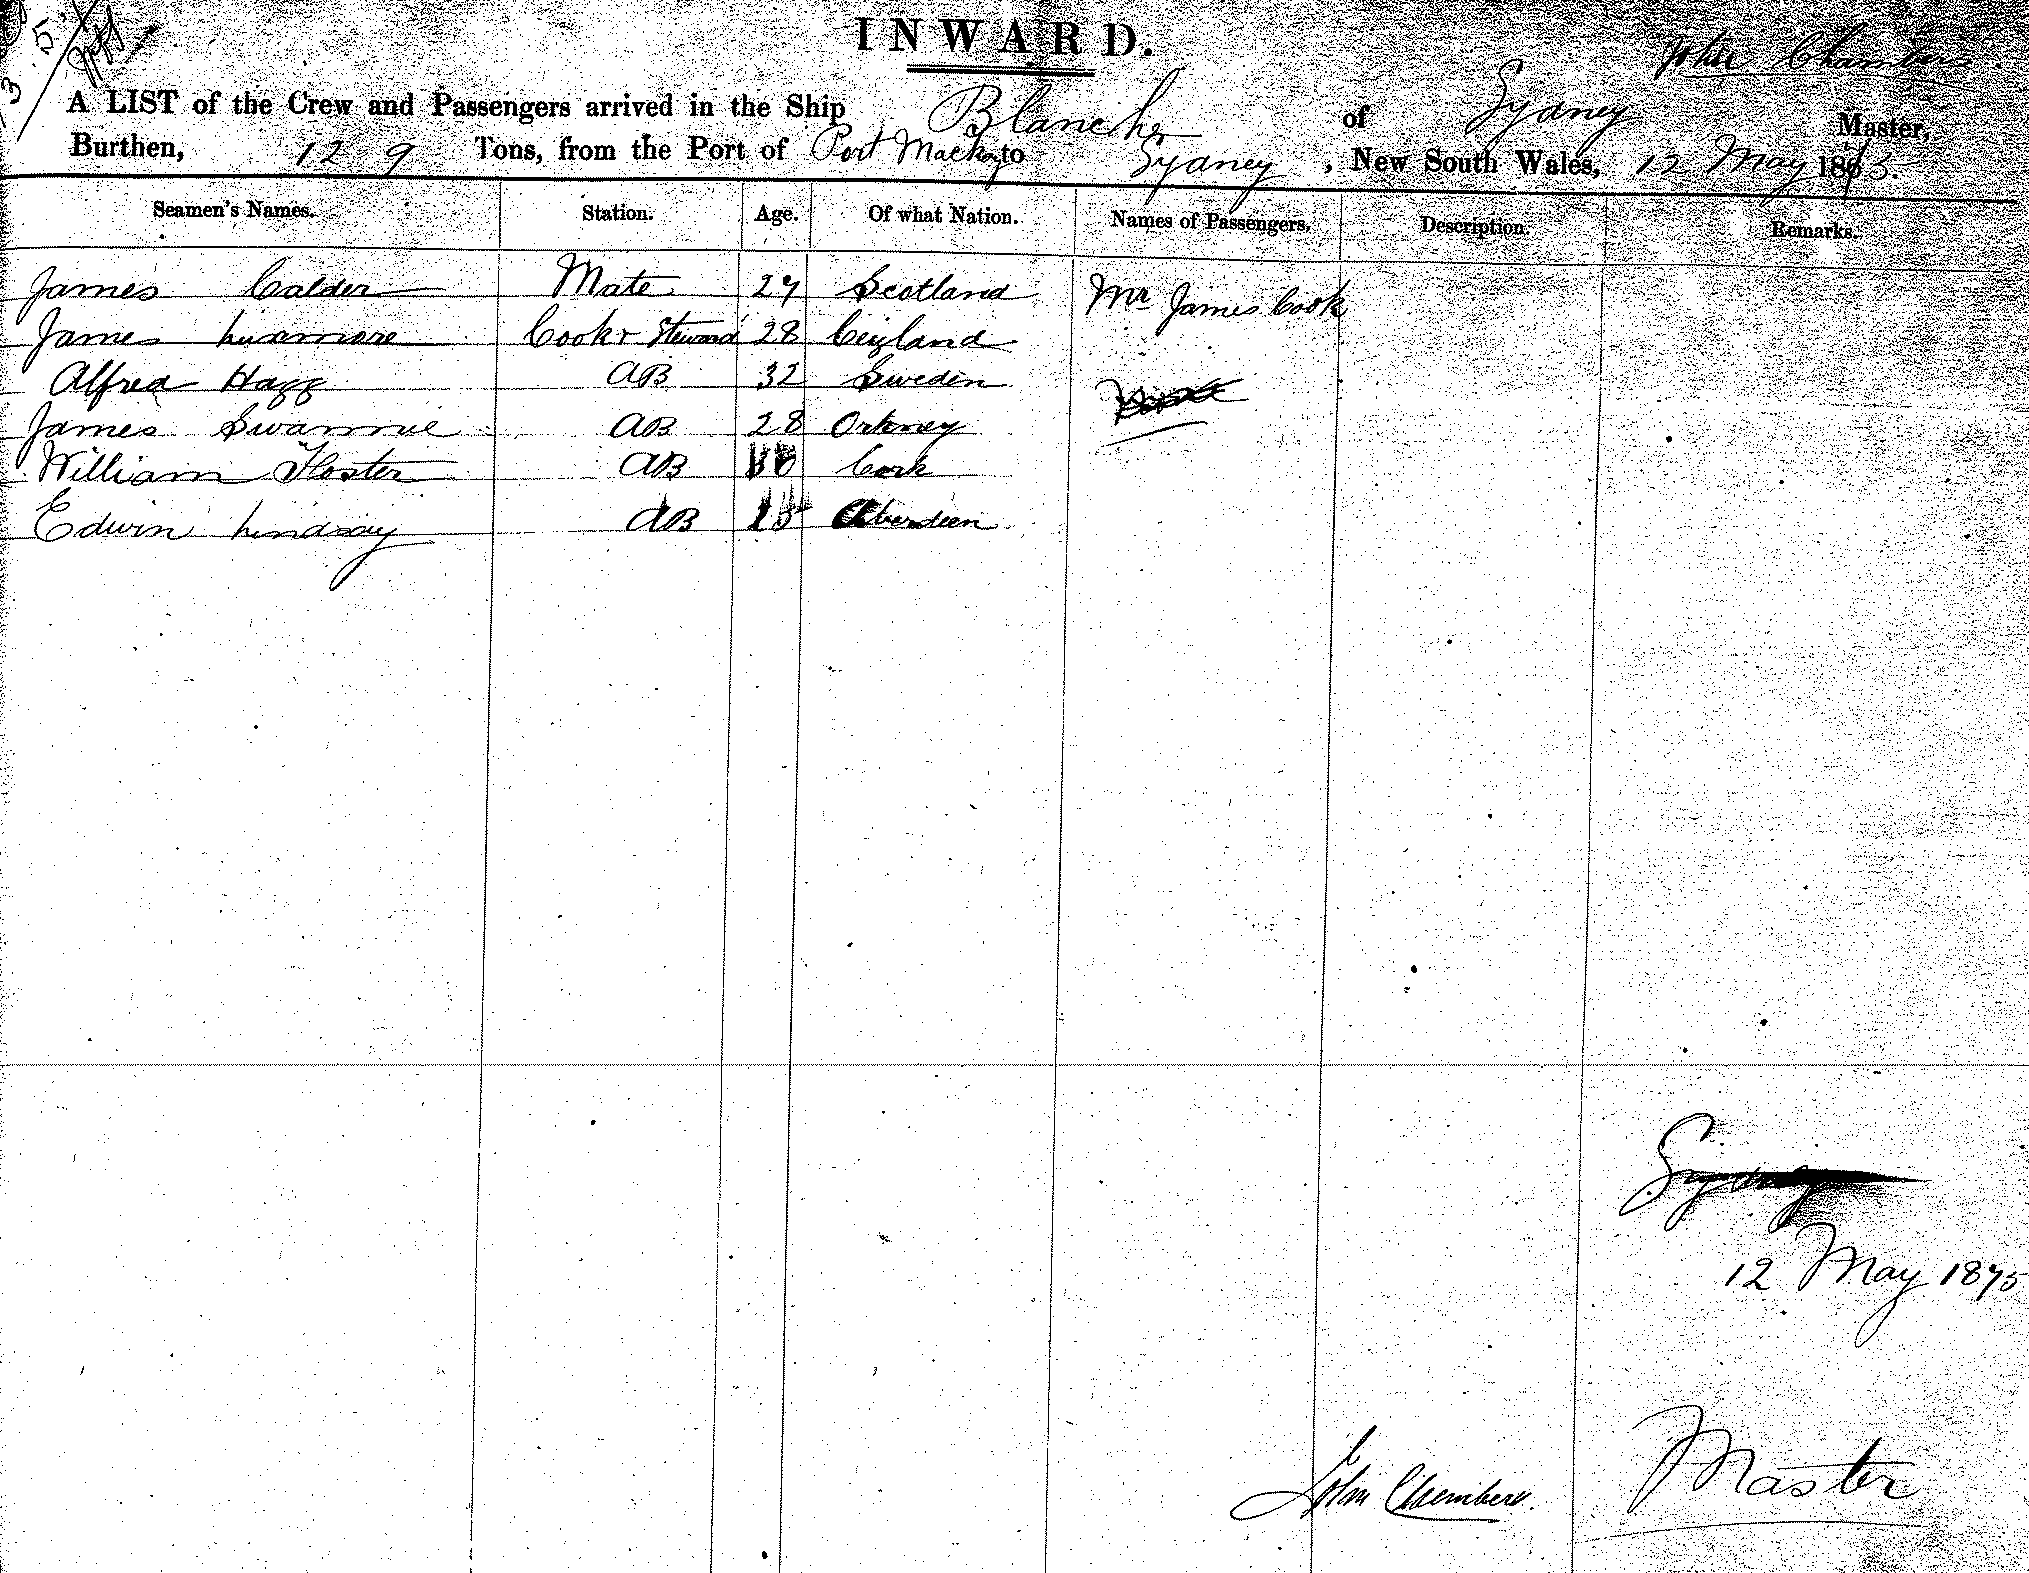 13.5.
INWARD.
John Chambers
A LIST of the Crew and Passengers arrived in the Ship Blanche of Sydney Master,
Burthen, 129 Tons, from the Port of Port Mackay to Sydney, New South Wales, 12 May 1875.
Seamen's Names. Station. Age. Of what Nation. Names of Passengers, Description. Remarks.
James Calder Mate 27 Scotland Mr James Cook
James Cook & Steward 28 Ceyland
Alfred Hagg AB 32 Sweden
James Swannie AB 28 Orkney
William Floster AB Cork
Edwin Lindsay AB Aberdeen
Sydney
12 May 1875
John Chambers. Master